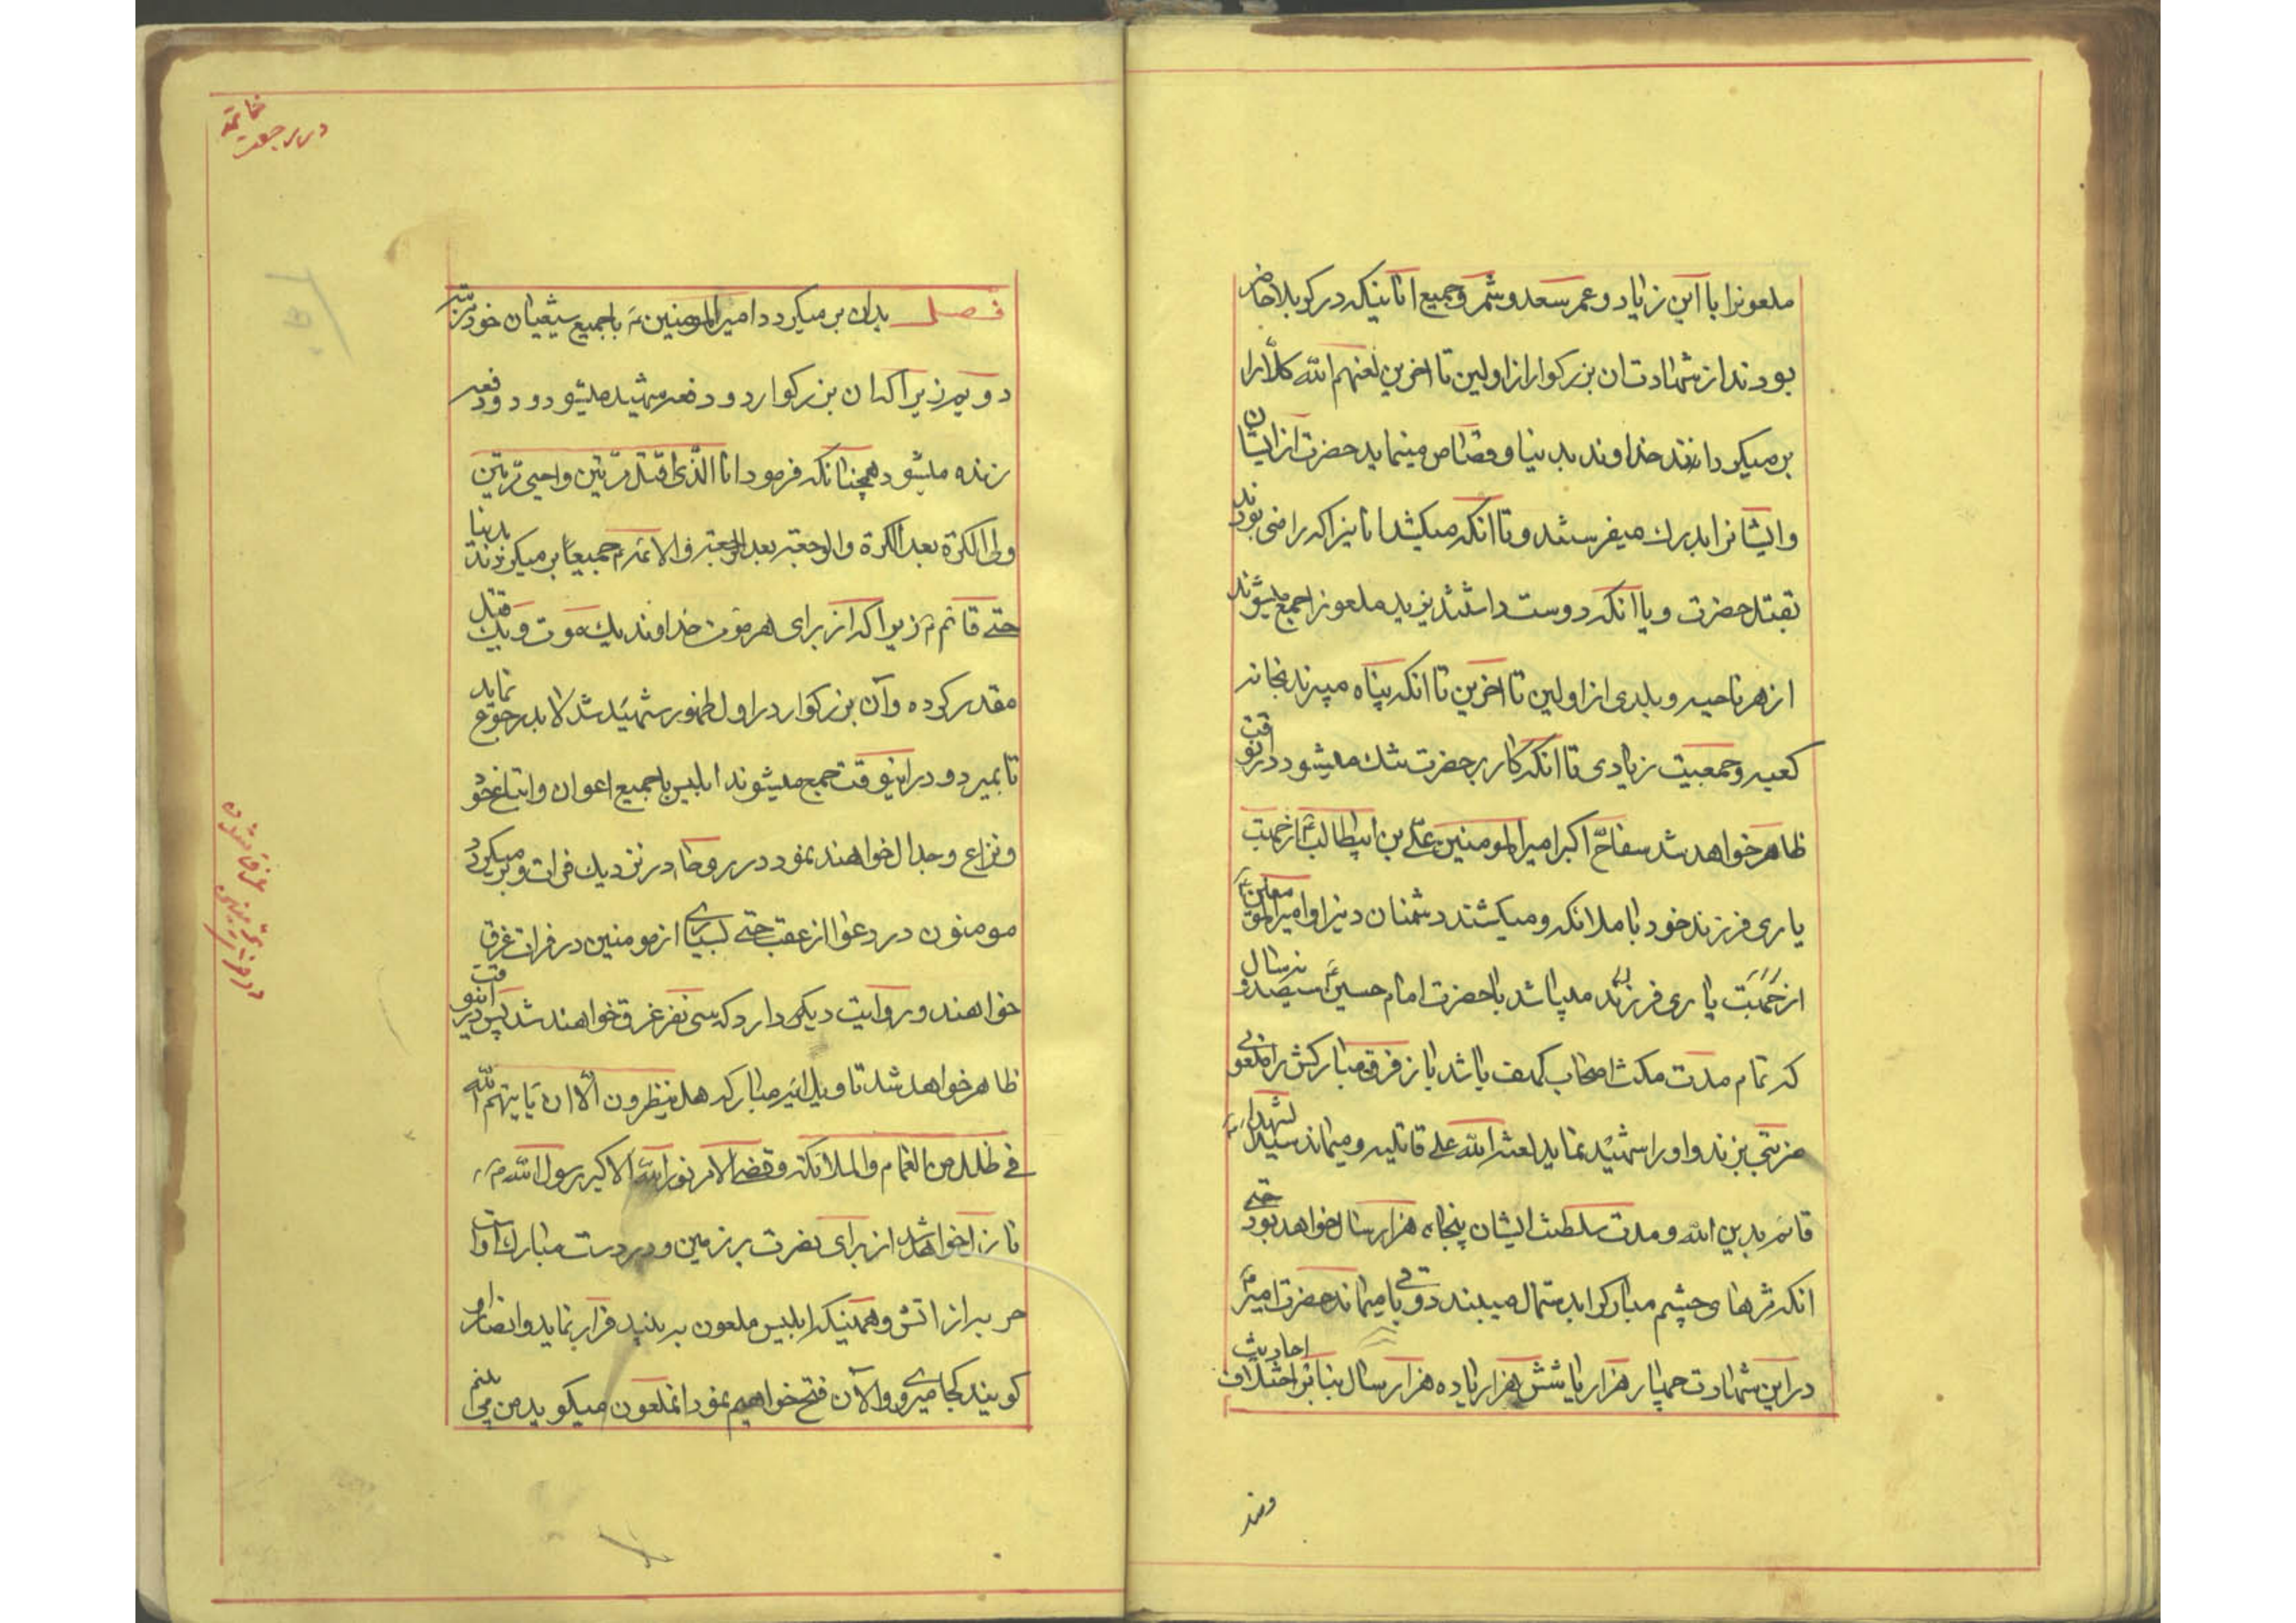 ملعونرا با ابن زیاد و عمر سعد و شمر و جمیع انانیکه در کربلا حاضر
بودند از شهادت ان بزرکوار از اولین تا اخرین لعنهم الله کلّا را
بر میکردانند خداوند بدنیا و قصاص مینماید حضرت از ایشان
و ایشانرا بدرك میفرستد و تا انکه میکشد انانیرا که راضی بودند
بقتل حضرت و یا انکه دوست داشتند یزید ملعونرا جمع میشوند
از هر ناحیه و بلدی از اولین تا اخرین تا انکه پناه میبرند بخانه
کعبه و جمعیت زیادی تا انکه کار بر حضرت تنك میشود در انوقت
ظاهر خواهد شد سفاح اکبر امیر المومنین علی بن ابیطالب ع از جهت
یاری فرزند خود با ملائکه و میکشند دشمنان دینرا و امیر المومنین ع
از جهت یاری فرزند میباشد با حضرت امام حسین ع سیصد و نه سال
که تمام مدت مکث اصحاب کهف باشد باز فرق مبارکش را ملعونی
ضربتی بزند و او را شهید نماید لعنة الله علی قاتلیه و میماند سید الشهداء ع
قائم بدین الله و مدت سلطنت ایشان پنجاه هزار سال خواهد بود حتی
انکه مژهای چشم مبارکرا بدستمال میبندد و باقی میماند حضرت امیر ع
در این شهادت چهار هزار یا شش هزار یا ده هزار سال بنا بر اختلاف احادیث
خاتمه
در رجعت
فصل بدان بر میکردد امیر المومنین ع با جمیع شیعیان خود مرتبه
دویم زیرا که ان بزرکوار دو دفعه شهید میشود و دو دفعه
زنده میشود همچنانکه فرمود انا الذی اقتل مرتین و احیی مرتین
ولی الکرة بعد الکرة والرجعة بعد الرجعة و الائمه ع جمیعا بر میکردند بدنیا
حتی قائم ع زیرا که از برای هر مؤمن خداوند یك موت و یك قتل
مقدر کرده و آن بزرکوار در اول ظهور شهید شد لابد رجوع نماید
تا بمیرد و در اینوقت جمع میشوند ابلیس با جمیع اعوان و اتباع خود
و نزاع و جدال خواهند نمود در روحا در نزدیك فرات و بر میکردد
مومنون در دعوا از عقب حتی بسیاری از مومنین در فرات غرق
خواهند و روایت دیکر دارد که سی نفر غرق خواهند شد پس در اینوقت
ظاهر خواهد شد تاویل ایه مبارکه هل ینظرون الّا ان یاتیهم الله
فی ظلل من الغمام والملائکة و قضی الامر نور الله الاکبر رسول الله ص
نازل خواهد شد از برای نصرت بر زمین و در دست مبارك او است
حربه از اتش و همینکه ابلیس ملعون به بیند فرار نماید و انصار او
کویند کجا میروی و الآن فتح خواهیم نمود انملعون میکوید من می بینم